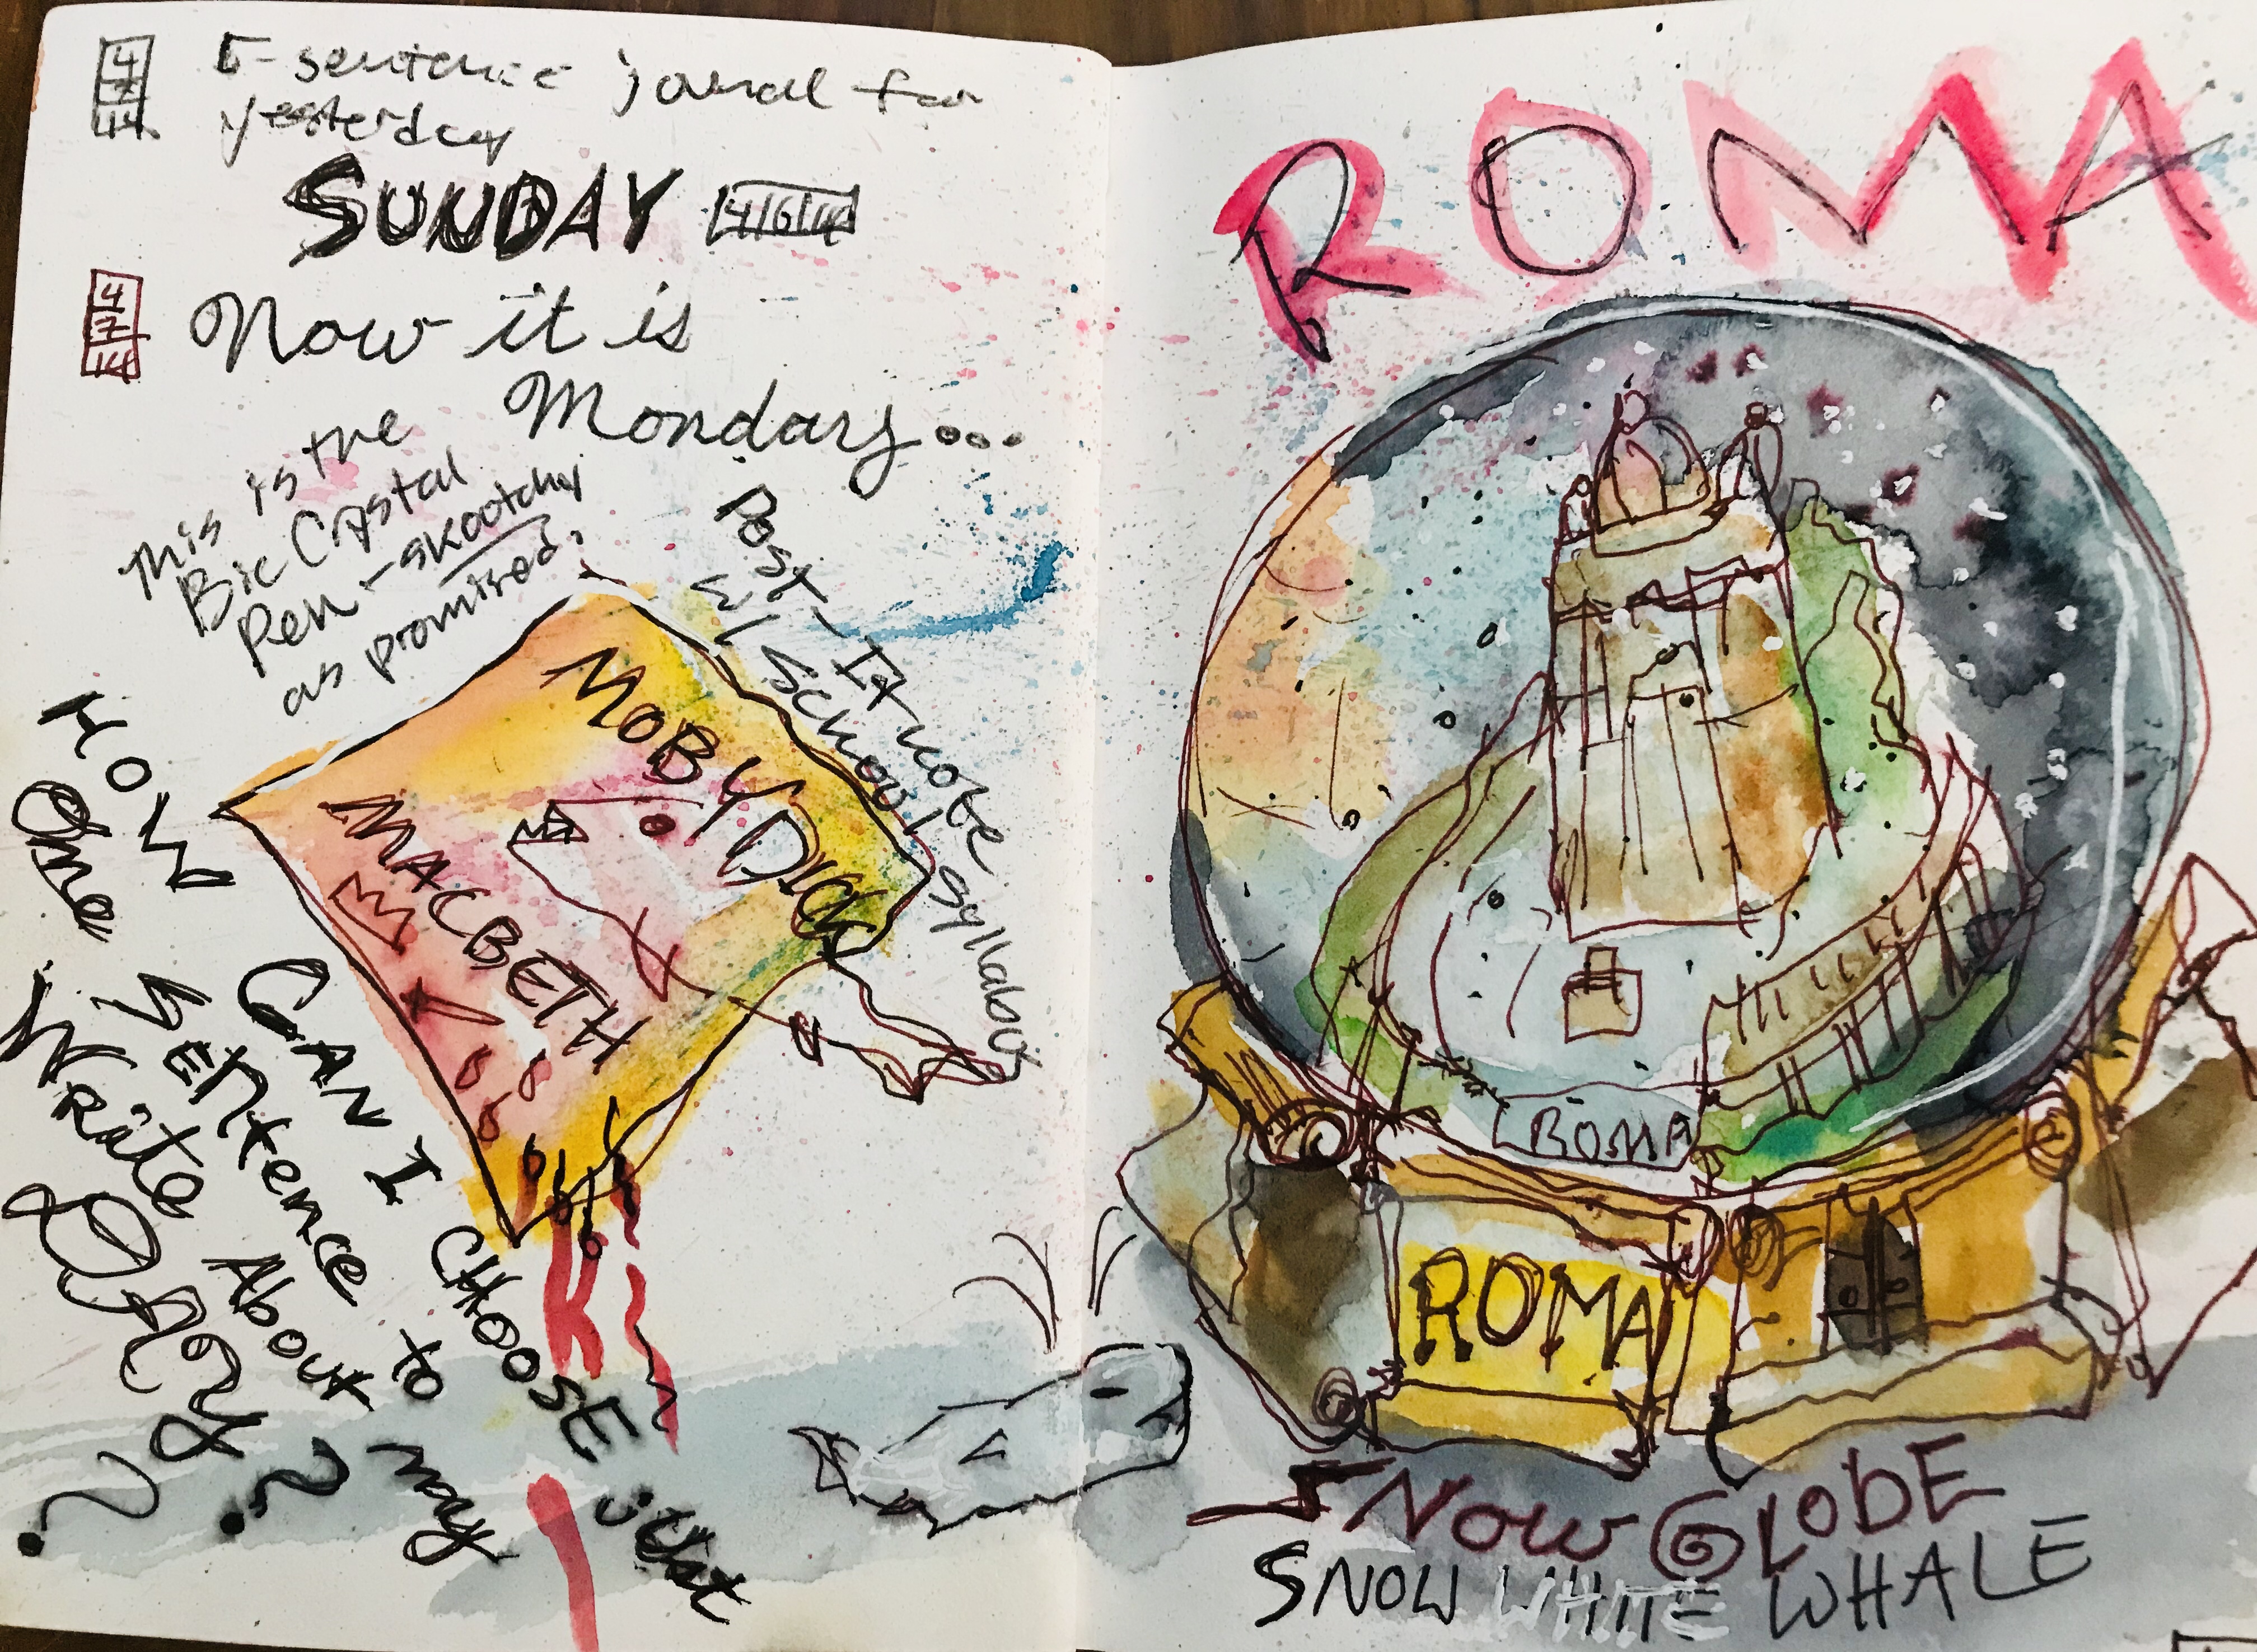 4
7
14
5-sentence journal for
yesterday
SUNDAY 4/6/14
4
7
14
Now it is
Monday...
This is the
Bic Crystal
Pen - skootchy
as promised.
Post-It note
School syllabus
MOBY DICK
MACBETH
HOW
CAN I CHOOSE just
One Sentence to my
Write About
Day?
ROMA
ROMA
ROMA
SNOW GLOBE
SNOW WHITE WHALE